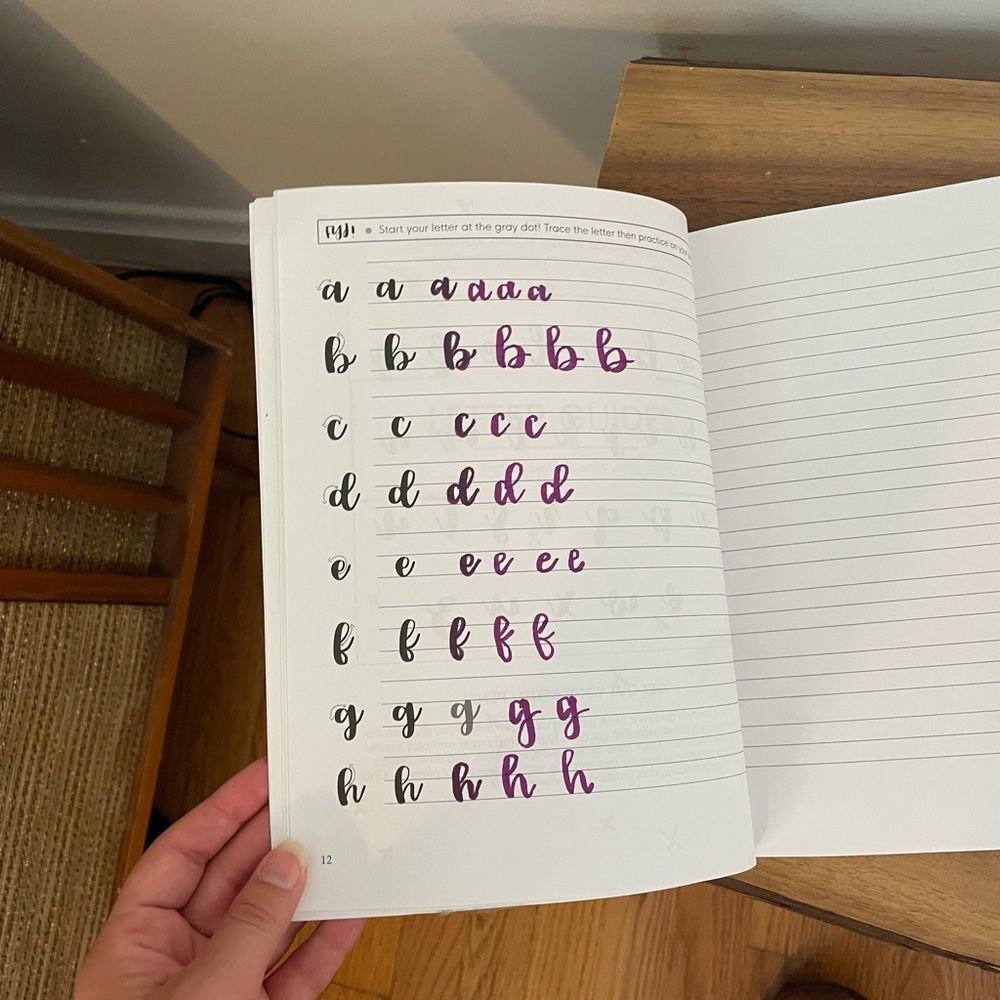 FYI! • Start your letter at the gray dot! Trace the letter then practice on your
a a a a a a
b b b b b b
c c c c c
d d d d d
e e e e e e
f f f f f
g g g g g
h h h h h
12